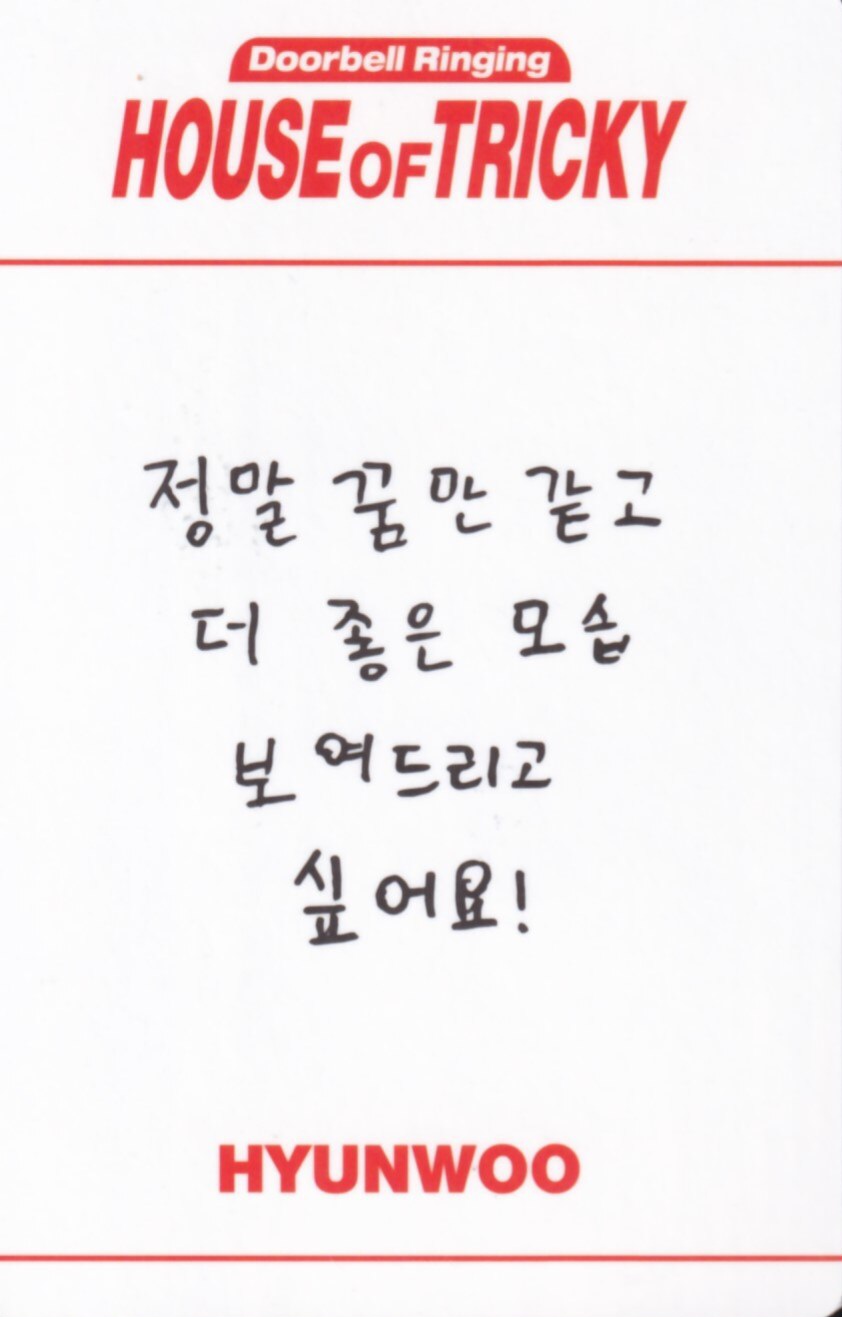 Doorbell Ringing
HOUSE OF TRICKY
정말 꿈만 같고
더 좋은 모습
보여드리고
싶어요!
HYUNWOO